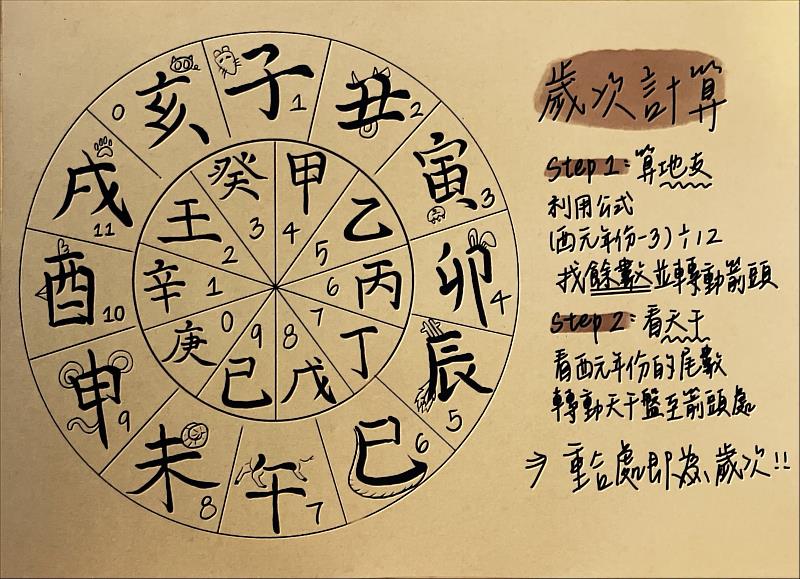 子 1
丑 2
寅 3
卯 4
辰 5
巳 6
午 7
未 8
申 9
酉 10
戌 11
亥 0
甲 4
乙 5
丙 6
丁 7
戊 8
己 9
庚 0
辛 1
壬 2
癸 3
歲次計算
Step 1: 算地支
利用公式
(西元年份-3)÷12
找餘數並轉動箭頭
Step 2: 看天干
看西元年份的尾數
轉動天干盤至箭頭處
⇒ 重合處即為歲次!!